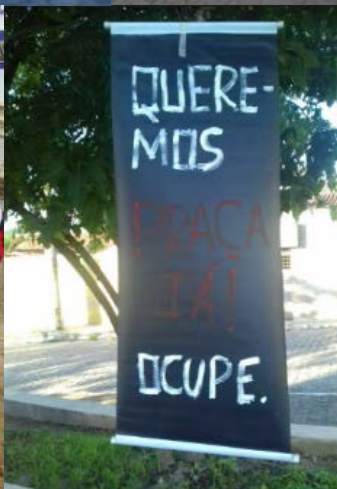 QUERE-
MOS
PRAÇA
JÁ!
OCUPE.